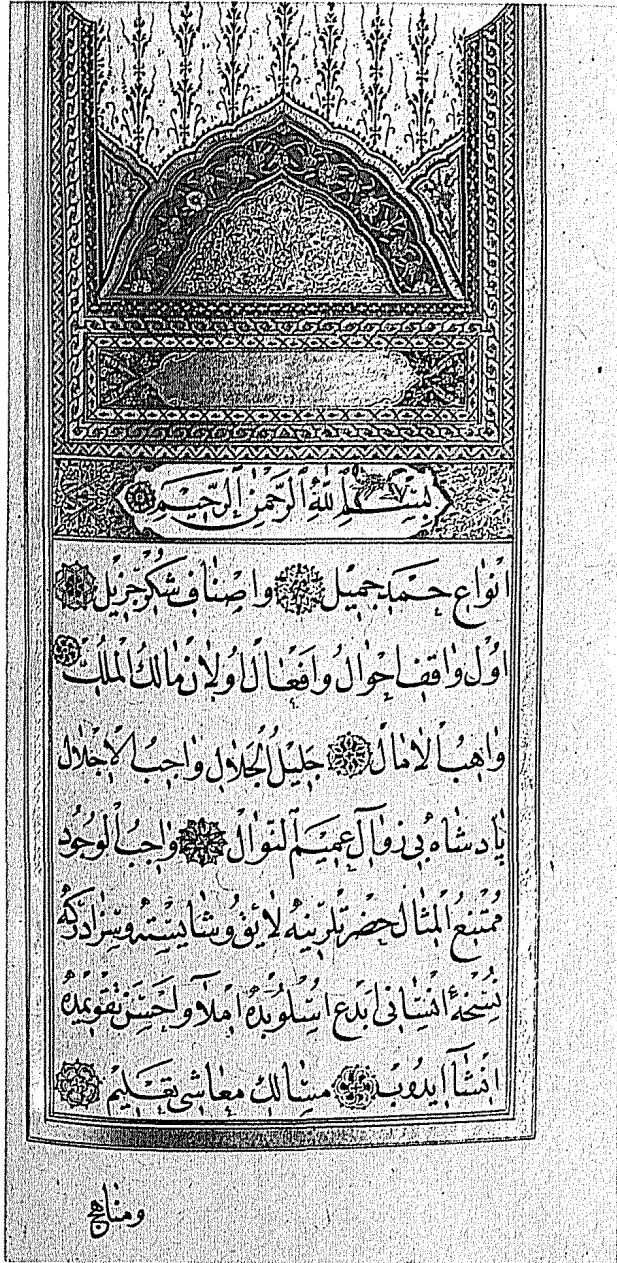 بسم الله الرحمن الرحيم
انواع حمد جميل واصناف شكر جزيل
اول واقف احوال وافعال اولان مالك الملك
واهب الامال جليل الجلال واجب الاجلال
پادشاه بى زوال عميم النوال واجب الوجود
ممتنع المثال حضرتلرينه لائق وشايسته وسزادركه
نسخهٔ انسانى ابدع اسلوبده املا واحسن تقويمده
انشآ ايدوب مسالك معاشى تعليم
ومناهج